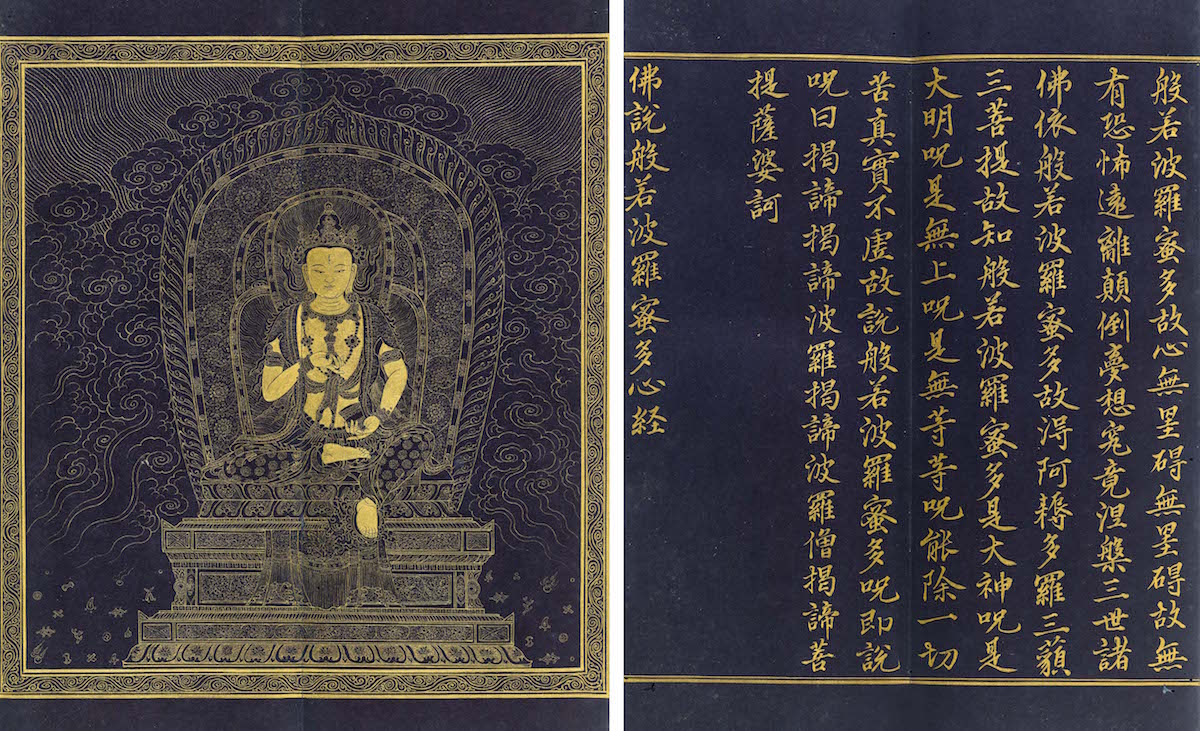 般若波羅蜜多故心無罣碍無罣碍故無
有恐怖遠離顛倒夢想究竟涅槃三世諸
佛依般若波羅蜜多故淂阿耨多羅三藐
三菩提故知般若波羅蜜多是大神呪是
大明呪是無上呪是無等等呪能除一切
苦真實不虛故說般若波羅蜜多呪即說
呪曰揭諦揭諦波羅揭諦波羅僧揭諦菩
提薩婆訶
佛說般若波羅蜜多心経